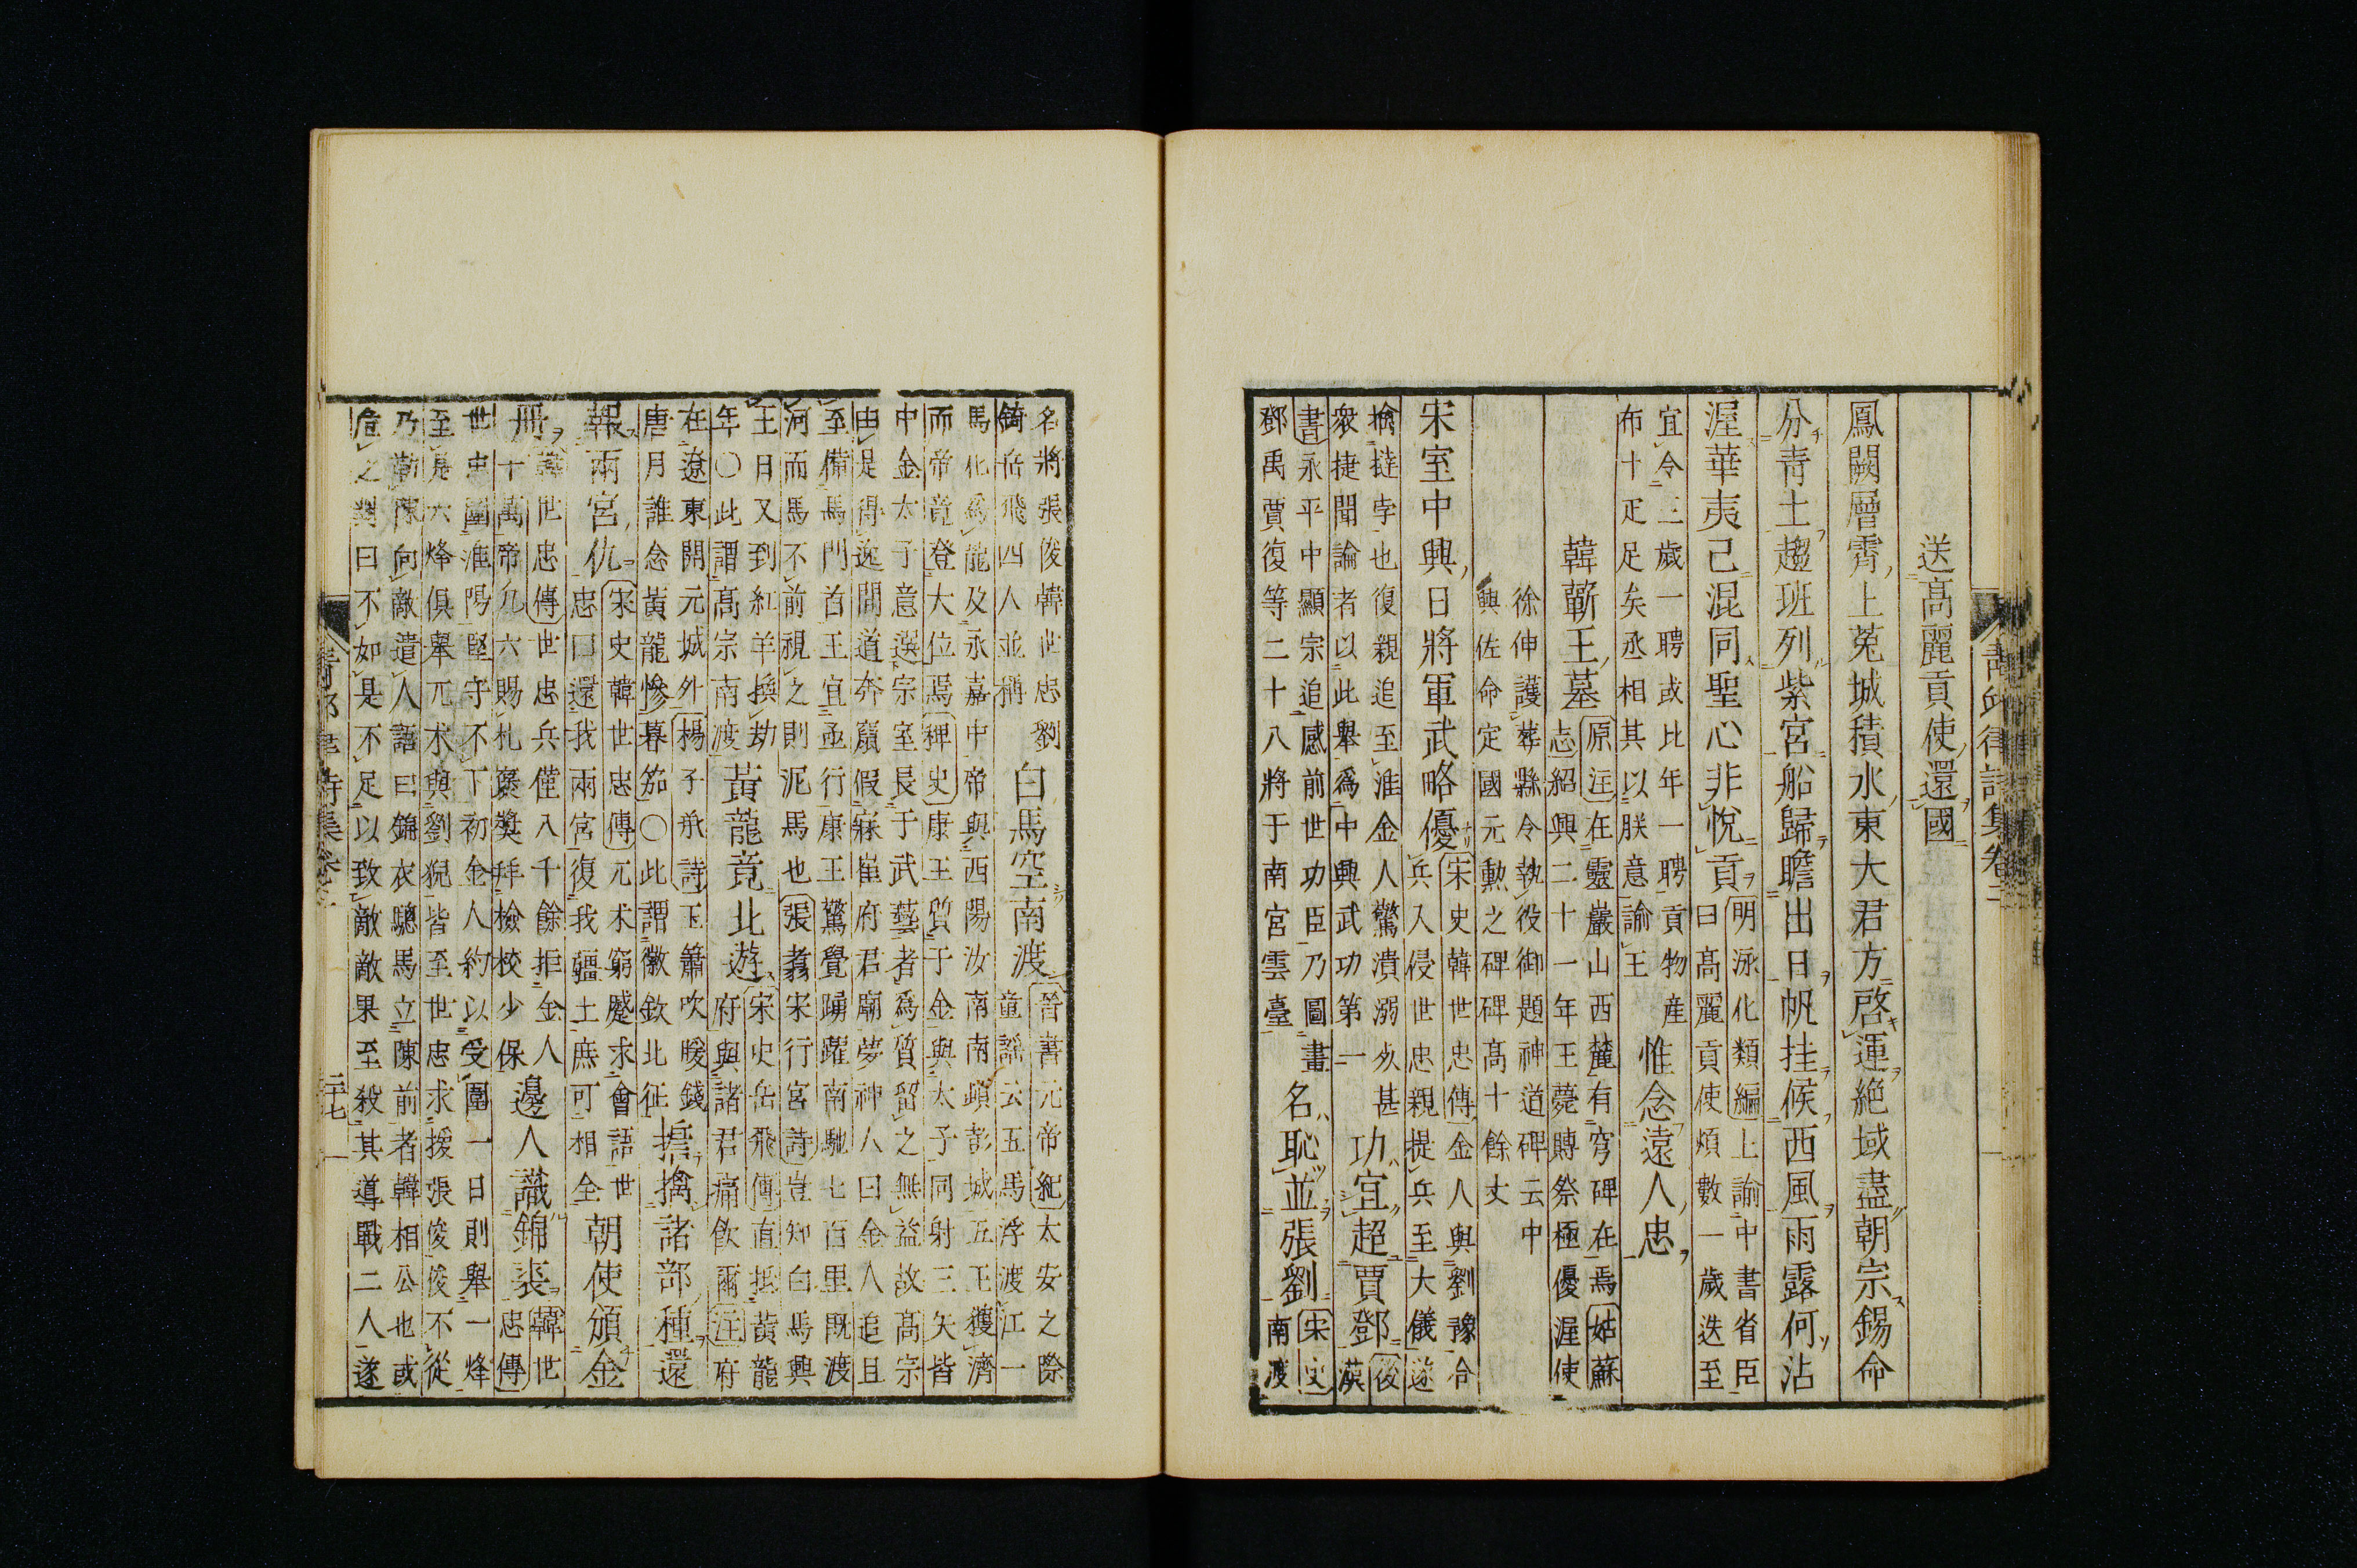 青邱律詩集卷二
送髙麗貢使還國
鳳闕層霄上菟城積水東大君方啓運絶域盡朝宗錫命
分青土趨班列紫宮船歸瞻出日帆挂候西風雨露何沾
渥華夷已混同聖心非悅貢
明泳化類編上諭中書省臣
曰髙麗貢使煩數一歲迭至
宜令三歲一聘或比年一聘貢物産
布十疋足矣丞相其以朕意諭王
惟念遠人忠
韓蘄王墓
原注在靈巖山西麓有穹碑在焉姑蘇
志紹興二十一年王薨賻祭極優渥使
徐伸護葬縣令執役御題神道碑云中
興佐命定國元勲之碑碑髙十餘丈
宋室中興日將軍武略優
宋史韓世忠傳金人與劉豫合
兵入侵世忠親提兵至大儀遂
擒撻孛也復親追至淮金人驚潰溺死甚
衆捷聞論者以此舉爲中興武功第一
功宜超賈鄧
後漢
書永平中顯宗追感前世功臣乃圖畫
鄧禹賈復等二十八將于南宮雲臺
名恥並張劉
宋史
南渡
名將張俊韓世忠劉
錡岳飛四人並稱
白馬空南渡
晉書元帝紀太安之際
童謠云五馬浮渡江一
馬化爲龍及永嘉中帝與西陽汝南南頓彭城五王獲濟
而帝竟登大位焉稗史康王質于金與太子同射三矢皆
中金太子意選宗室長于武藝者爲質留之無益故髙宗
由是得逸間道奔竄假寐崔府君廟夢神人曰金人追且
至備馬門首王宜亟行康王驚覺踴躍南馳七百里既渡
河而馬不前視之則泥馬也張翥宋行宮詩豈知白馬興
王日又到紅羊換劫
年○此謂髙宗南渡
黃龍竟北遊
宋史岳飛傳直抵黃龍
府與諸君痛飲爾注府
在遼東開元城外楊子承詩玉簫吹暖錢
唐月誰念黃龍慘暮笳○此謂徽欽北征
擒諸部種還
報兩宮仇
宋史韓世忠傳兀朮窮蹙求會語世
忠曰還我兩宮復我疆土庶可相全
朝使頒金
冊
韓世忠傳世忠兵僅八千餘拒金人
十萬帝凡六賜札褒奬拜檢校少保
邊人識錦裘
韓世
忠傳
世忠圍淮陽堅守不下初金人約以受圍一日則舉一烽
至是六烽俱舉兀朮與劉猊皆至世忠求援張俊俊不從
乃勒陳向敵遣人語曰錦衣驄馬立陳前者韓相公也或
危之對曰不如是不足以致敵敵果至殺其導戰二人遂
二十七